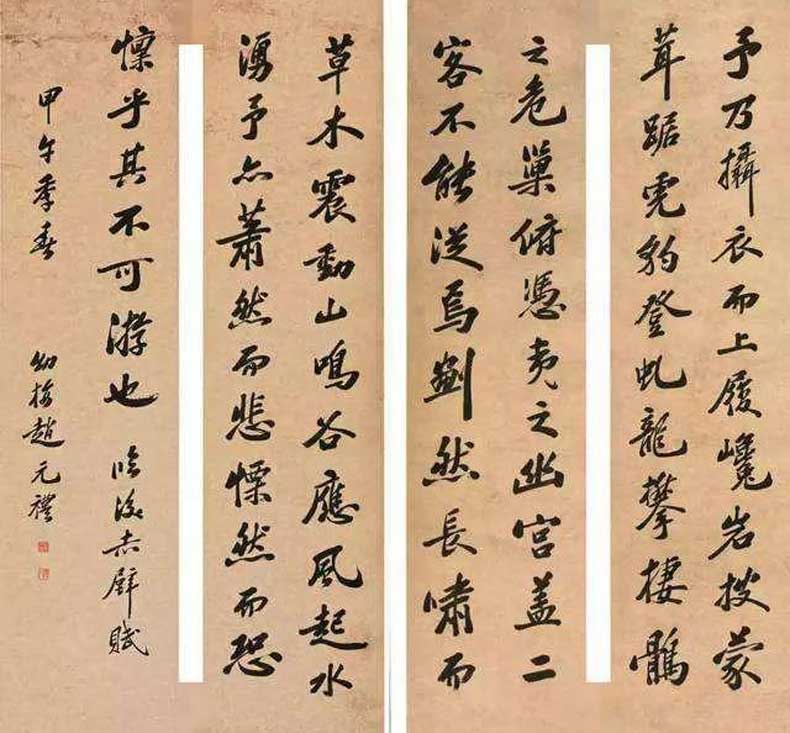 予乃攝衣而上履巉岩披蒙
茸踞虎豹登虬龍攀棲鶻
之危巢俯憑夷之幽宮蓋二
客不能從焉劃然長嘯而
草木震動山鳴谷應風起水
湧予亦蕭然而悲慄然而恐
懍乎其不可游也 臨後赤壁賦
甲午季春 幼梅趙元禮